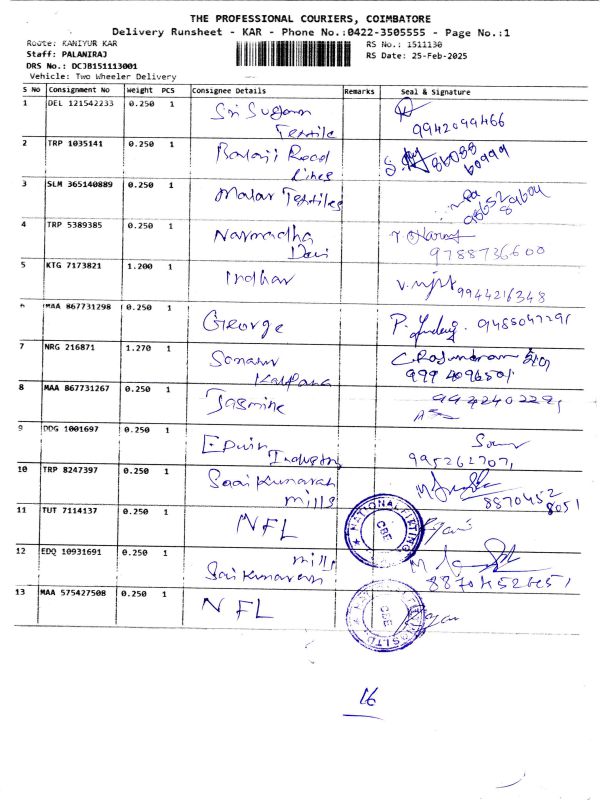 THE PROFESSIONAL COURIERS, COIMBATORE
Delivery Runsheet - KAR - Phone No.:0422-3505555 - Page No.:1
Route: KANIYUR KAR
RS No.: 1511130
Staff: PALANIRAJ
RS Date: 25-Feb-2025
DRS No.: DCJB151113001
Vehicle: Two Wheeler Delivery
S No Consignment No Weight PCS Consignee Details Remarks Seal & Signature
1 DEL 121542233 0.250 1 Sri Sugam
Textile 9942094466
2 TRP 1035141 0.250 1 Balaji Road
Lines 86088
60999
3 SLM 365140889 0.250 1 Malar Textiles
98652
89604
4 TRP 5389385 0.250 1 Narmadha
Devi 9788736600
5 KTG 7173821 1.200 1 Indhar
9944216348
6 MAA 867731298 0.250 1 George P. 9488047291
7 NRG 216871 1.270 1 Sonasur C Rajundram
Kalpana 999 4096501
8 MAA 867731267 0.250 1 Jasmine
9 DDG 1001697 0.250 1 Edwin
Industry 9952627071
10 TRP 8247397 0.250 1 Saai Kumaran
mills 8870452
8051
11 TUT 7114137 0.250 1 NFL NATIONAL FITTING
CBE
12 EDQ 10931691 0.250 1 mills
Sai Kumaran
13 MAA 575427508 0.250 1 NFL
CBE
16